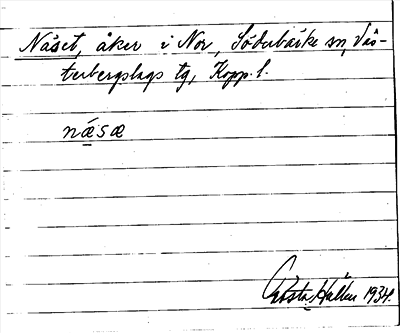 Näset, åker i Nor, Söderbärke sn, Väs-
terbergslags tg, Kopp. l.
næsæ
Gösta Hallen 1934.